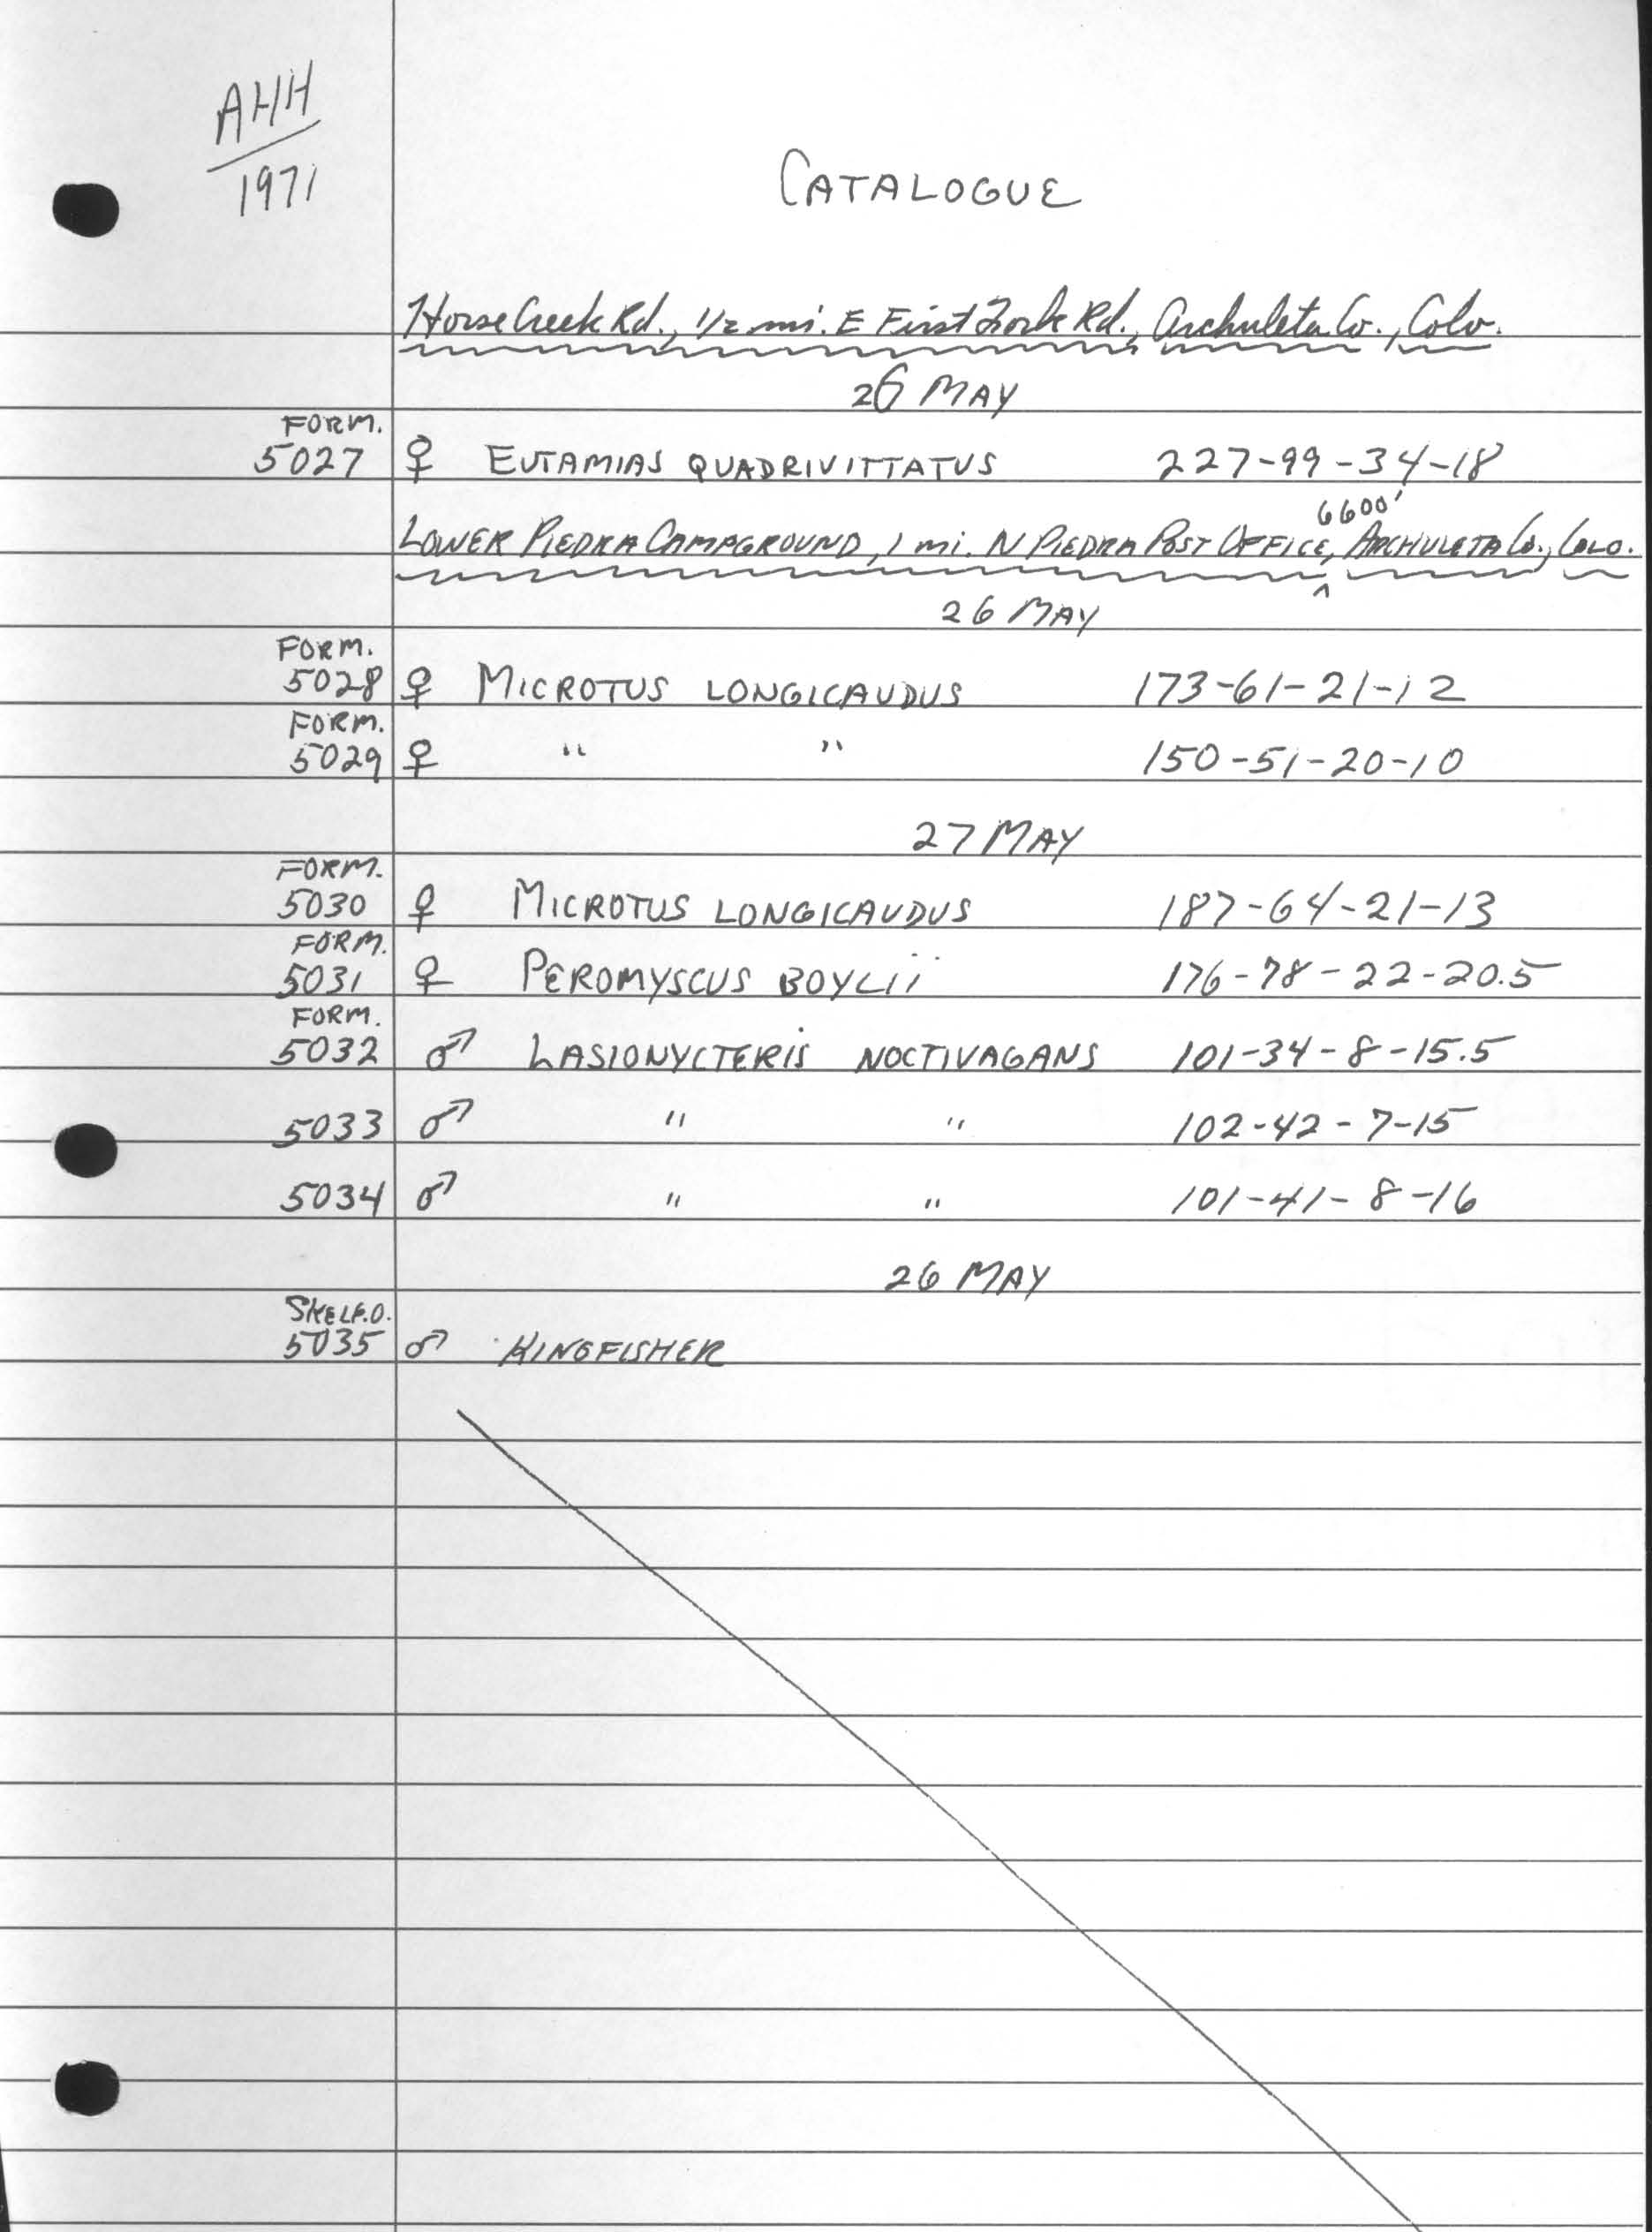 AHH
1971
CATALOGUE
Horse Creek Rd., 1/2 mi. E First Fork Rd., Archuleta Co., Colo.
26 MAY
FORM.
5027 ♀ EUTAMIAS QUADRIVITTATUS 227-99-34-18
6600'
LOWER PIEDRA CAMPGROUND, 1 mi. N PIEDRA POST OFFICE, ^ ARCHULETA Co., COLO.
26 MAY
FORM.
5028 ♀ MICROTUS LONGICAUDUS 173-61-21-12
FORM.
5029 ♀ " " 150-51-20-10
27 MAY
FORM.
5030 ♀ MICROTUS LONGICAUDUS 187-64-21-13
FORM.
5031 ♀ PEROMYSCUS BOYLII 176-78-22-20.5
FORM.
5032 ♂ LASIONYCTERIS NOCTIVAGANS 101-34-8-15.5
5033 ♂ " " 102-42-7-15
5034 ♂ " " 101-41-8-16
26 MAY
SKEL.O.
5035 ♂ KINGFISHER